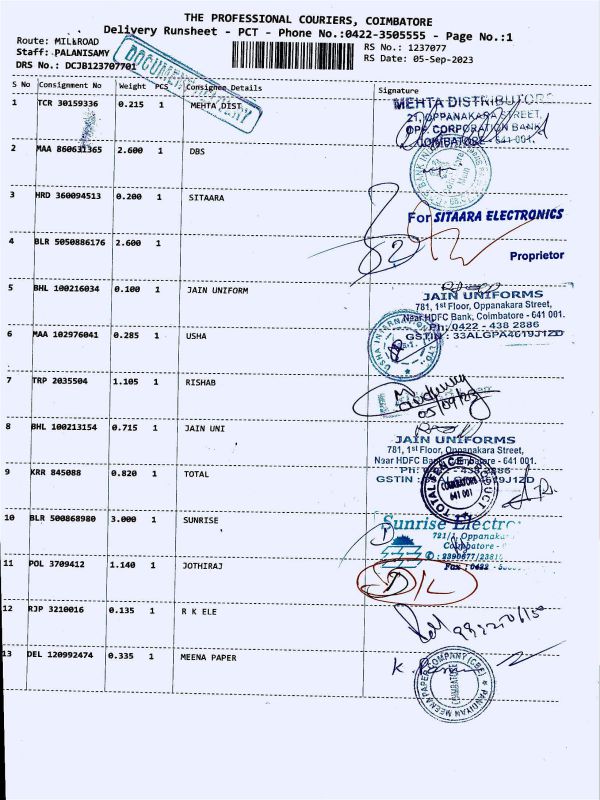 THE PROFESSIONAL COURIERS, COIMBATORE
Delivery Runsheet - PCT - Phone No.:0422-3505555 - Page No.:1
Route: MILLROAD
Staff: PALANISAMY
DRS No.: DCJB123707701
RS No.: 1237077
RS Date: 05-Sep-2023
S No Consignment No Weight PCS Consignee Details Signature
1 TCR 30159336 0.215 1 MEHTA DIST
MEHTA DISTRIBUTORS
21, OPPANAKARA STREET,
OPP. CORPORATION BANK,
COIMBATORE - 641 001.
2 MAA 860631365 2.600 1 DBS
3 HRD 360094513 0.200 1 SITAARA
For SITAARA ELECTRONICS
Proprietor
4 BLR 5050886176 2.600 1
5 BHL 100216034 0.100 1 JAIN UNIFORM
JAIN UNIFORMS
781, 1st Floor, Oppanakara Street,
Near HDFC Bank, Coimbatore - 641 001.
Ph: 0422 - 438 2886
GSTIN : 33ALGPA4619J1ZD
6 MAA 102976041 0.285 1 USHA
USHA INTERNATIONAL LTD.
7 TRP 2035504 1.105 1 RISHAB
05/09/23
8 BHL 100213154 0.715 1 JAIN UNI
JAIN UNIFORMS
781, 1st Floor, Oppanakara Street,
Near HDFC Bank, Coimbatore - 641 001.
Ph: 0422 - 438 2886
GSTIN : 33ALGPA4619J1ZD
9 KRR 845088 0.820 1 TOTAL
TOTAL FENCE PRODUCT
COIMBATORE
641 001
10 BLR 500868980 3.000 1 SUNRISE
Sunrise Electro
721/1, Oppanaka
Coimbatore -
Fax : 0422 -
11 POL 3709412 1.140 1 JOTHIRAJ
D/L
12 RJP 3210016 0.135 1 R K ELE
13 DEL 120992474 0.335 1 MEENA PAPER
PANDIYAN MEENA PAPER COMPANY (CBE)
COIMBATORE